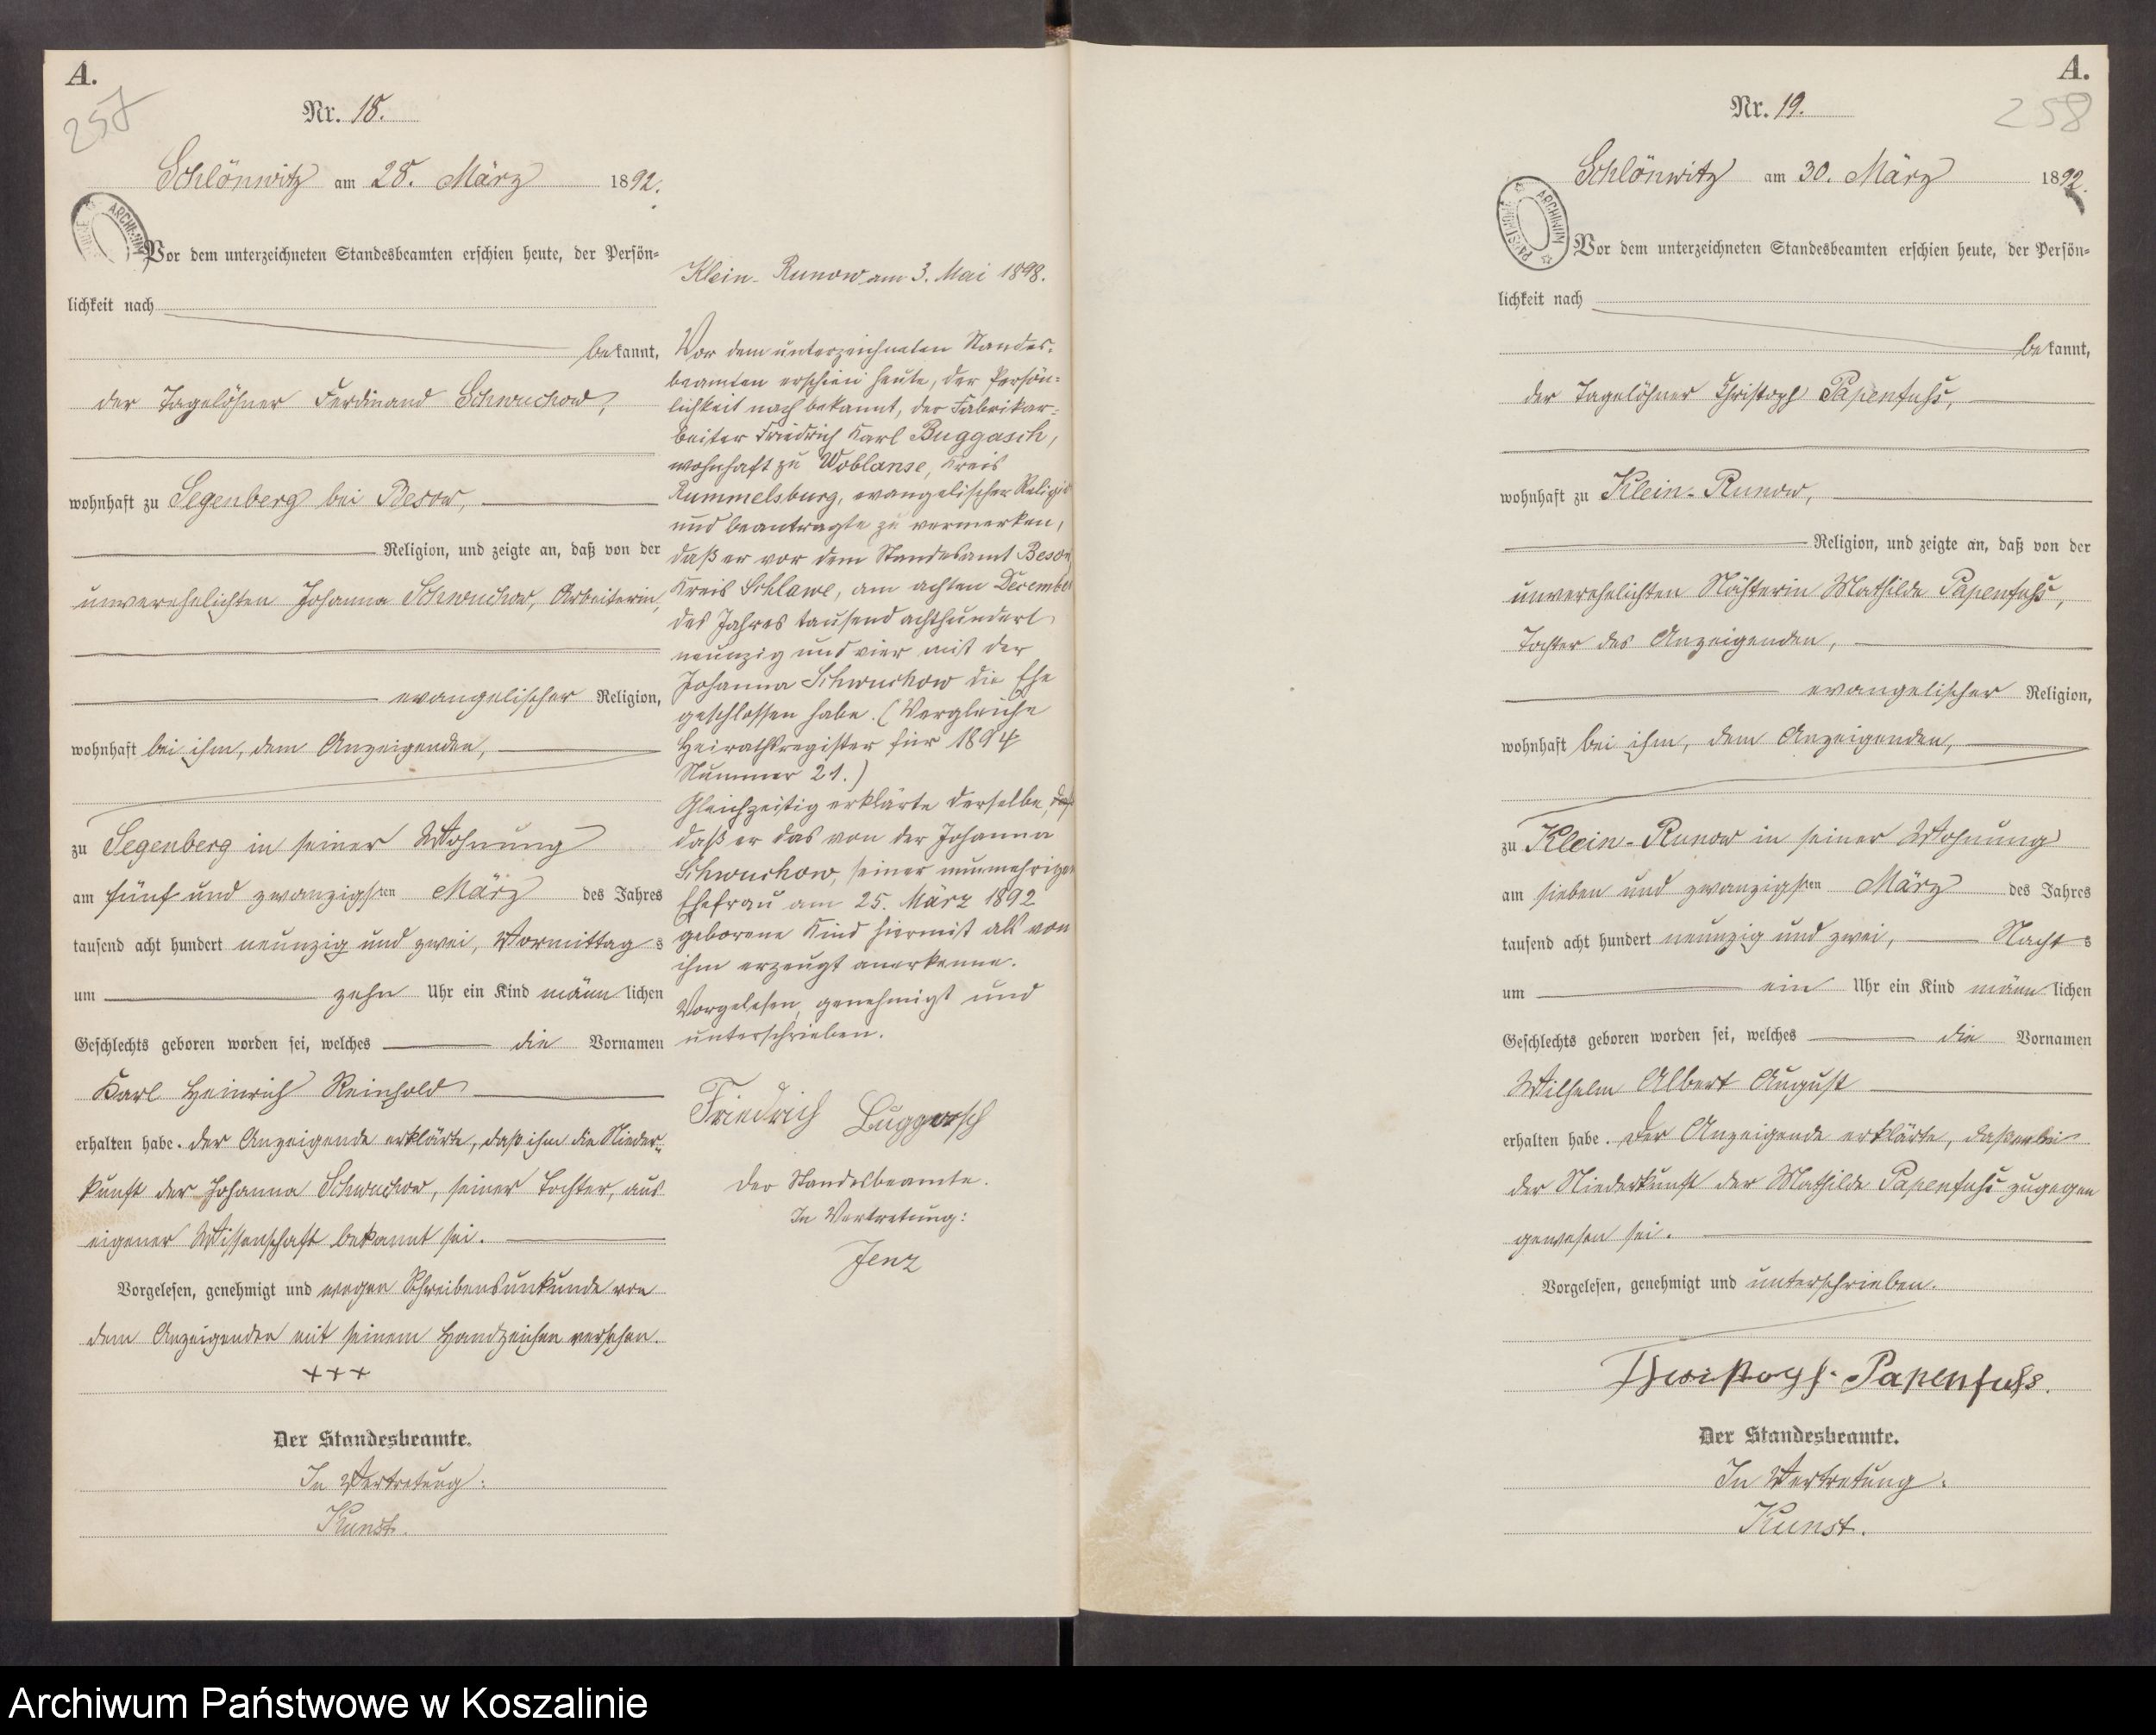 A.
257
Nr. 18.
Schlönwitz am 28. März 1892.
Vor dem unterzeichneten Standesbeamten erschien heute, der Persön=
lichkeit nach
bekannt,
der Tagelöhner Ferdinand Schwuchow,
wohnhaft zu Segenberg bei Besow,
Religion, und zeigte an, daß von der
unverehelichten Johanna Schwuchow, Arbeiterin,
evangelischer Religion,
wohnhaft bei ihm, dem Anzeigenden,
zu Segenberg in seiner Wohnung
am fünf und zwanzigsten März des Jahres
tausend acht hundert neunzig und zwei, Vormittags
um zehn Uhr ein Kind männlichen
Geschlechts geboren worden sei, welches die Vornamen
Karl Heinrich Reinhold
erhalten habe. Der Anzeigende erklärte, daß ihm die Nieder=
kunft der Johanna Schwuchow, seiner Tochter, aus
eigener Wissenschaft bekannt sei.
Vorgelesen, genehmigt und wegen Schreibensunkunde von
dem Anzeigenden mit seinem Handzeichen versehen.
+++
Der Standesbeamte.
In Vertretung:
Kunst.
Klein-Runow am 3. Mai 1898.
Vor dem unterzeichneten Standes=
beamten erschien heute, der Persön=
lichkeit nach bekannt, der Fabrikar=
beiter Friedrich Karl Buggasch,
wohnhaft zu Woblanse, Kreis
Rummelsburg, evangelischer Religio
und beantragte zu vermerken,
daß er vor dem Standesamt Besow
Kreis Schlawe, am achten December
des Jahres tausend achthundert
neunzig und vier mit der
Johanna Schwuchow die Ehe
geschlossen habe. (Vergleiche
Heirathsregister für 1894
Nummer 21.)
Gleichzeitig erklärte derselbe, daß
daß er das von der Johanna
Schwuchow, seiner nunmehrigen
Ehefrau am 25. März 1892
geborene Kind hiermit als von
ihm erzeugt anerkenne.
Vorgelesen, genehmigt und
unterschrieben.
Friedrich Buggasch
Der Standesbeamte.
In Vertretung:
Jenz
A.
258
Nr. 19.
Schlönwitz am 30. März 1892.
ARCHIWUM
Vor dem unterzeichneten Standesbeamten erschien heute, der Persön=
lichkeit nach
bekannt,
der Tagelöhner Christoph Papenfuhs,
wohnhaft zu Klein-Runow,
Religion, und zeigte an, daß von der
unverehelichten Nähterin Mathilde Papenfuhs,
Tochter des Anzeigenden,
evangelischer Religion,
wohnhaft bei ihm, dem Anzeigenden,
zu Klein-Runow in seiner Wohnung
am sieben und zwanzigsten März des Jahres
tausend acht hundert neunzig und zwei, Nachts
um ein Uhr ein Kind männlichen
Geschlechts geboren worden sei, welches die Vornamen
Wilhelm Albert August
erhalten habe. Der Anzeigende erklärte, daß er bei
der Niederkunft der Mathilde Papenfuhs zugegen
gewesen sei.
Vorgelesen, genehmigt und unterschrieben.
Christoph Papenfuhs.
Der Standesbeamte.
In Vertretung:
Kunst.
Archiwum Państwowe w Koszalinie